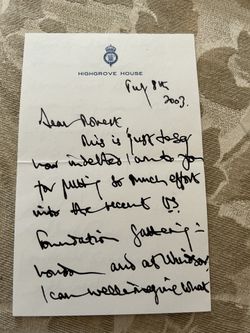 HIGHGROVE HOUSE
July 8th
2003.
Dear Robert
This is just to say
how indebted I am to you
for putting so much effort
into the recent US
Foundation gathering in
London and at Windsor.
I can well imagine what